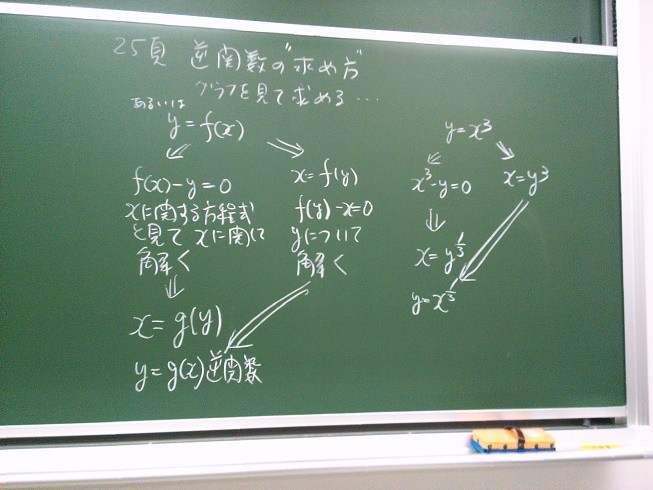 25頁 逆関数の"求め方"
グラフを見て求める…
あるいは
y=f(x)
f(x)-y=0
xに関する方程式
と見て xに関して
解く
x=g(y)
y=g(x)逆関数
x=f(y)
f(y)-x=0
yについて
解く
y=x³
x³-y=0
x=y^{1/3}
y=x^{1/3}
x=y³